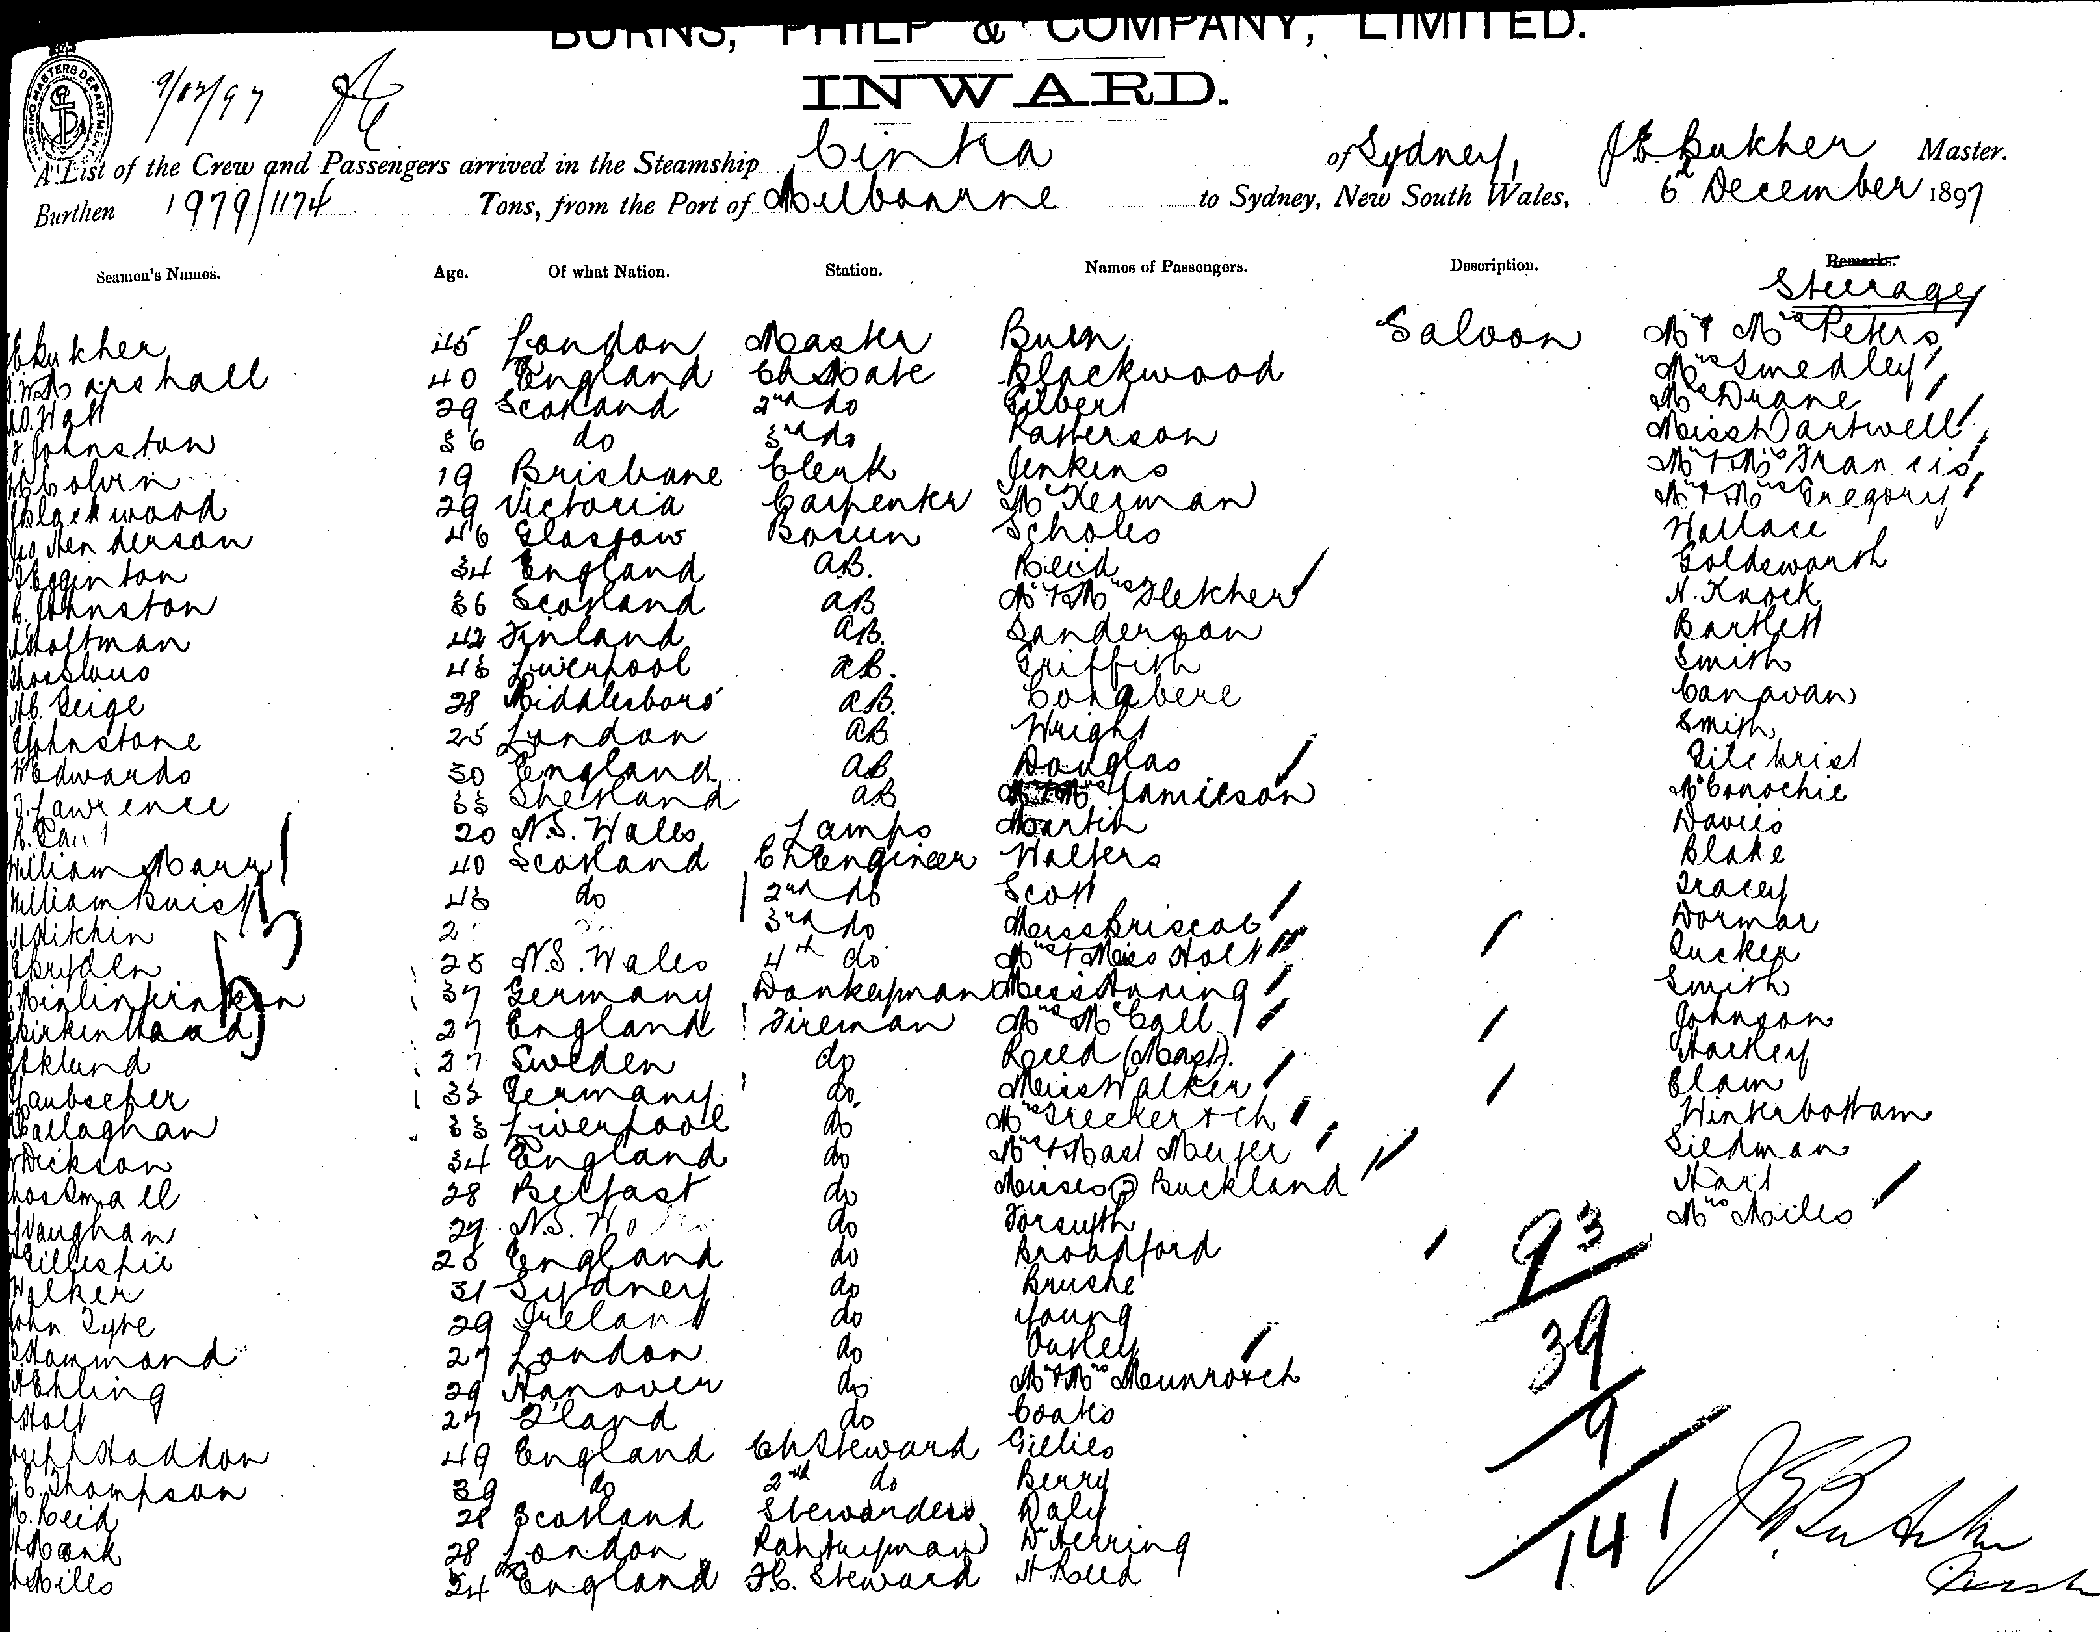 BURNS, PHILP & COMPANY, LIMITED.
INWARD.
SHIPPING MASTERS DEPARTMENT
9/12/97
A List of the Crew and Passengers arrived in the Steamship Cintra of Sydney, J E. Butcher Master.
Burthen 1979/1174 Tons, from the Port of Melbourne to Sydney, New South Wales, 6th December 1897
Seamen's Names. Age. Of what Nation. Station. Names of Passengers. Description. Remarks.
Steerage
Butcher 45 London Master Burn Saloon Mr & Mrs Peters
Marshall 40 England Ch Mate Blackwood Mrs Smedley
Watt 29 Scotland 2nd do Gilbert Mrs Drane
Johnston 36 do 3rd do Patterson Miss Hartwell
Colvin 19 Brisbane Clerk Jenkins Mr & Mrs Francis
Blackwood 29 Victoria Carpenter McKerman Mr & Mrs Gregory
Henderson 46 Glasgow Bosun Scholes Wallace
Egginton 34 England AB. Reid Goldsworth
Johnston 36 Scotland AB Mr & Mrs Fletcher N. Knock
Holtman 42 Finland AB. Sanderson Bartlett
43 Liverpool AB. Griffith Smith
Geige 28 Middlesboro' AB. Conabere Canavan
Johnstone 25 London AB Wright Smith
Edwards 30 England AB Douglas Gilchrist
Lawrence 33 Shetland AB Mr & Mrs Jamieson McConochie
20 N.S. Wales Lamps Martin Davies
William Marr 40 Scotland Ch Engineer Walters Blake
William Buist 43 do 2nd do Scott Tracey
Aitchin 3rd do Miss Briscoe Dormar
Bryden 25 N.S. Wales 4th do Mrs & Miss Holt Tucker
37 Germany Donkeyman Miss Anning Smith
Birkinhead 27 England Fireman Mrs McCall Johnson
Eklund 27 Sweden do Reed (Mast). Hackey
Taubscher 32 Germany do Miss Walker Elam
Callaghan 33 Liverpool do Mrs Treeker & ch Winterbottam
Dickson 34 England do Mrs & Mast Meyer Siedman
Thos Small 28 Belfast do Misses 2 Buckland Hart
Vaughan 29 N.S. do Forsyth Mrs Miles
Gillespie 25 England do Broadford
Walker 31 Sydney do Brushe
John Tyre 29 Ireland do Young
Hammond 27 London do Ousley
Ehling 29 Hanover do Mr & Mrs Munro & ch
Holt 27 do Coates
Joseph Haddon 49 England Ch Steward Gillies
Thompson 39 do 2nd do Berry
Reid 28 Scotland Stewardess Daly
Monk 28 London Pantryman Dr Herring
Miles 24 England F.C. Steward H Reed
93
39
9
141
J E. Butcher